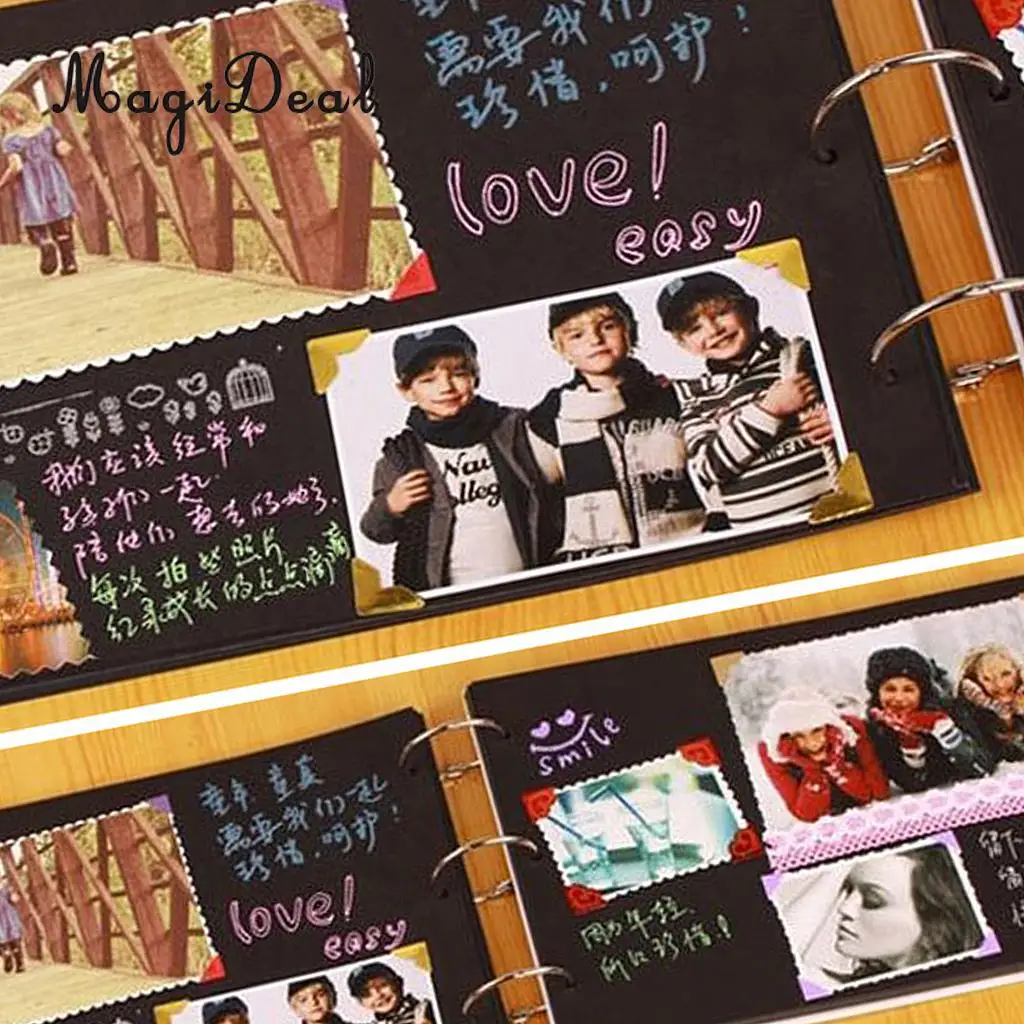 MagiDeal
需要我们
珍惜,呵护!
love!
easy
我们应该经常和
孩子们一起
陪他们
每次拍些照片
记录成长的点点滴滴
Nau
lleg
OCEAN
童年 童真
需要我们一起
珍惜,呵护!
love!
easy
smile
因为年轻,
所以珍惜!